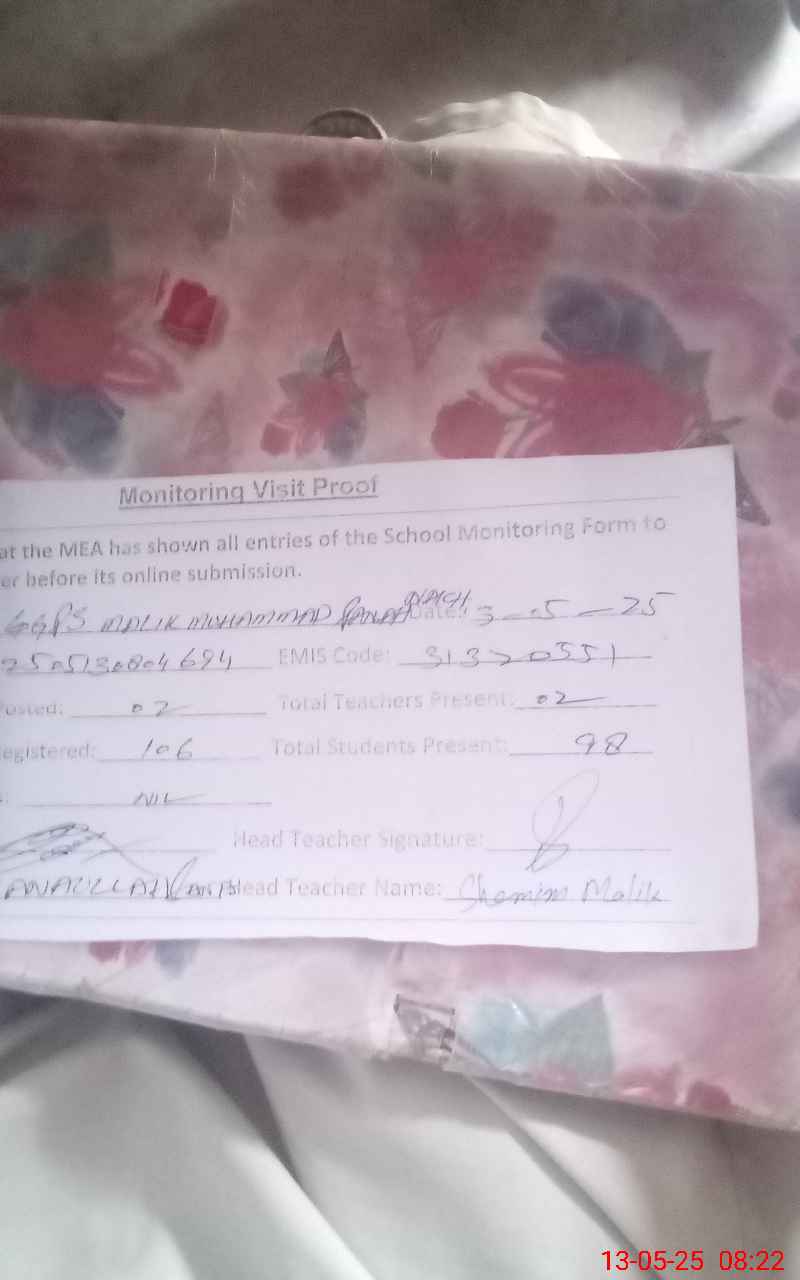 Monitoring Visit Proof
at the MEA has shown all entries of the School Monitoring Form to
er before its online submission.
GGPS MALIK MUHAMMAD Date: 3-05-25
EMIS Code: 31320551
Posted: 02 Total Teachers Present: 02
egistered: 106 Total Students Present: 98
NIL
Head Teacher Signature:
Head Teacher Name: Shemim Malik
13-05-25 08:22